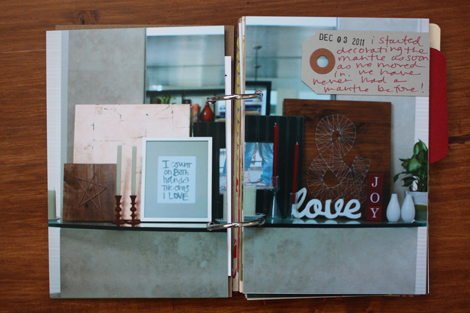 DEC 03 2011 i started
decorating the
mantle as soon
as we moved
in, we have
never had a
mantle before!
I count
on Both
hands
The days
I LOVE
love
JOY